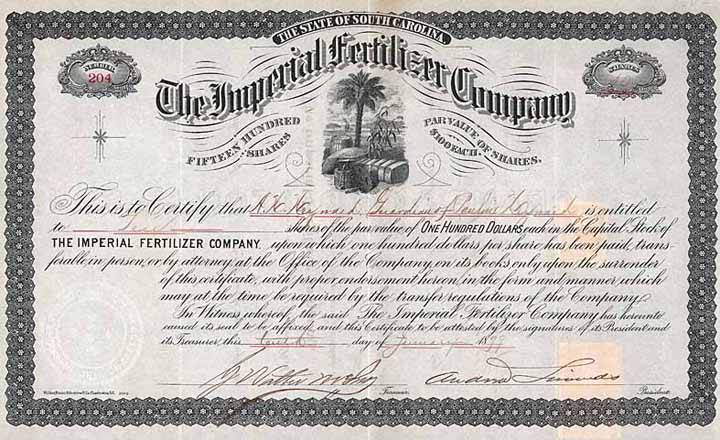 THE STATE OF SOUTH CAROLINA
The Imperial Fertilizer Company
NUMBER
204
SHARES
FIFTEEN HUNDRED SHARES
PAR VALUE OF SHARES, $100 EACH.
This is to Certify that Guardian of is entitled
to shares of the par value of ONE HUNDRED DOLLARS each in the Capital Stock of
THE IMPERIAL FERTILIZER COMPANY, upon which one hundred dollars per share has been paid, trans-
ferable in person, or by attorney, at the Office of the Company, on its books only upon the surrender
of this certificate, with proper endorsement hereon, in the form and manner which
may at the time be required by the transfer regulations of the Company.
In Witness whereof, the said The Imperial Fertilizer Company has hereunto
caused its seal to be affixed, and this Certificate to be attested by the signatures of its President and
its Treasurer, this day of January 1899
Treasurer. Andrew Simonds President.